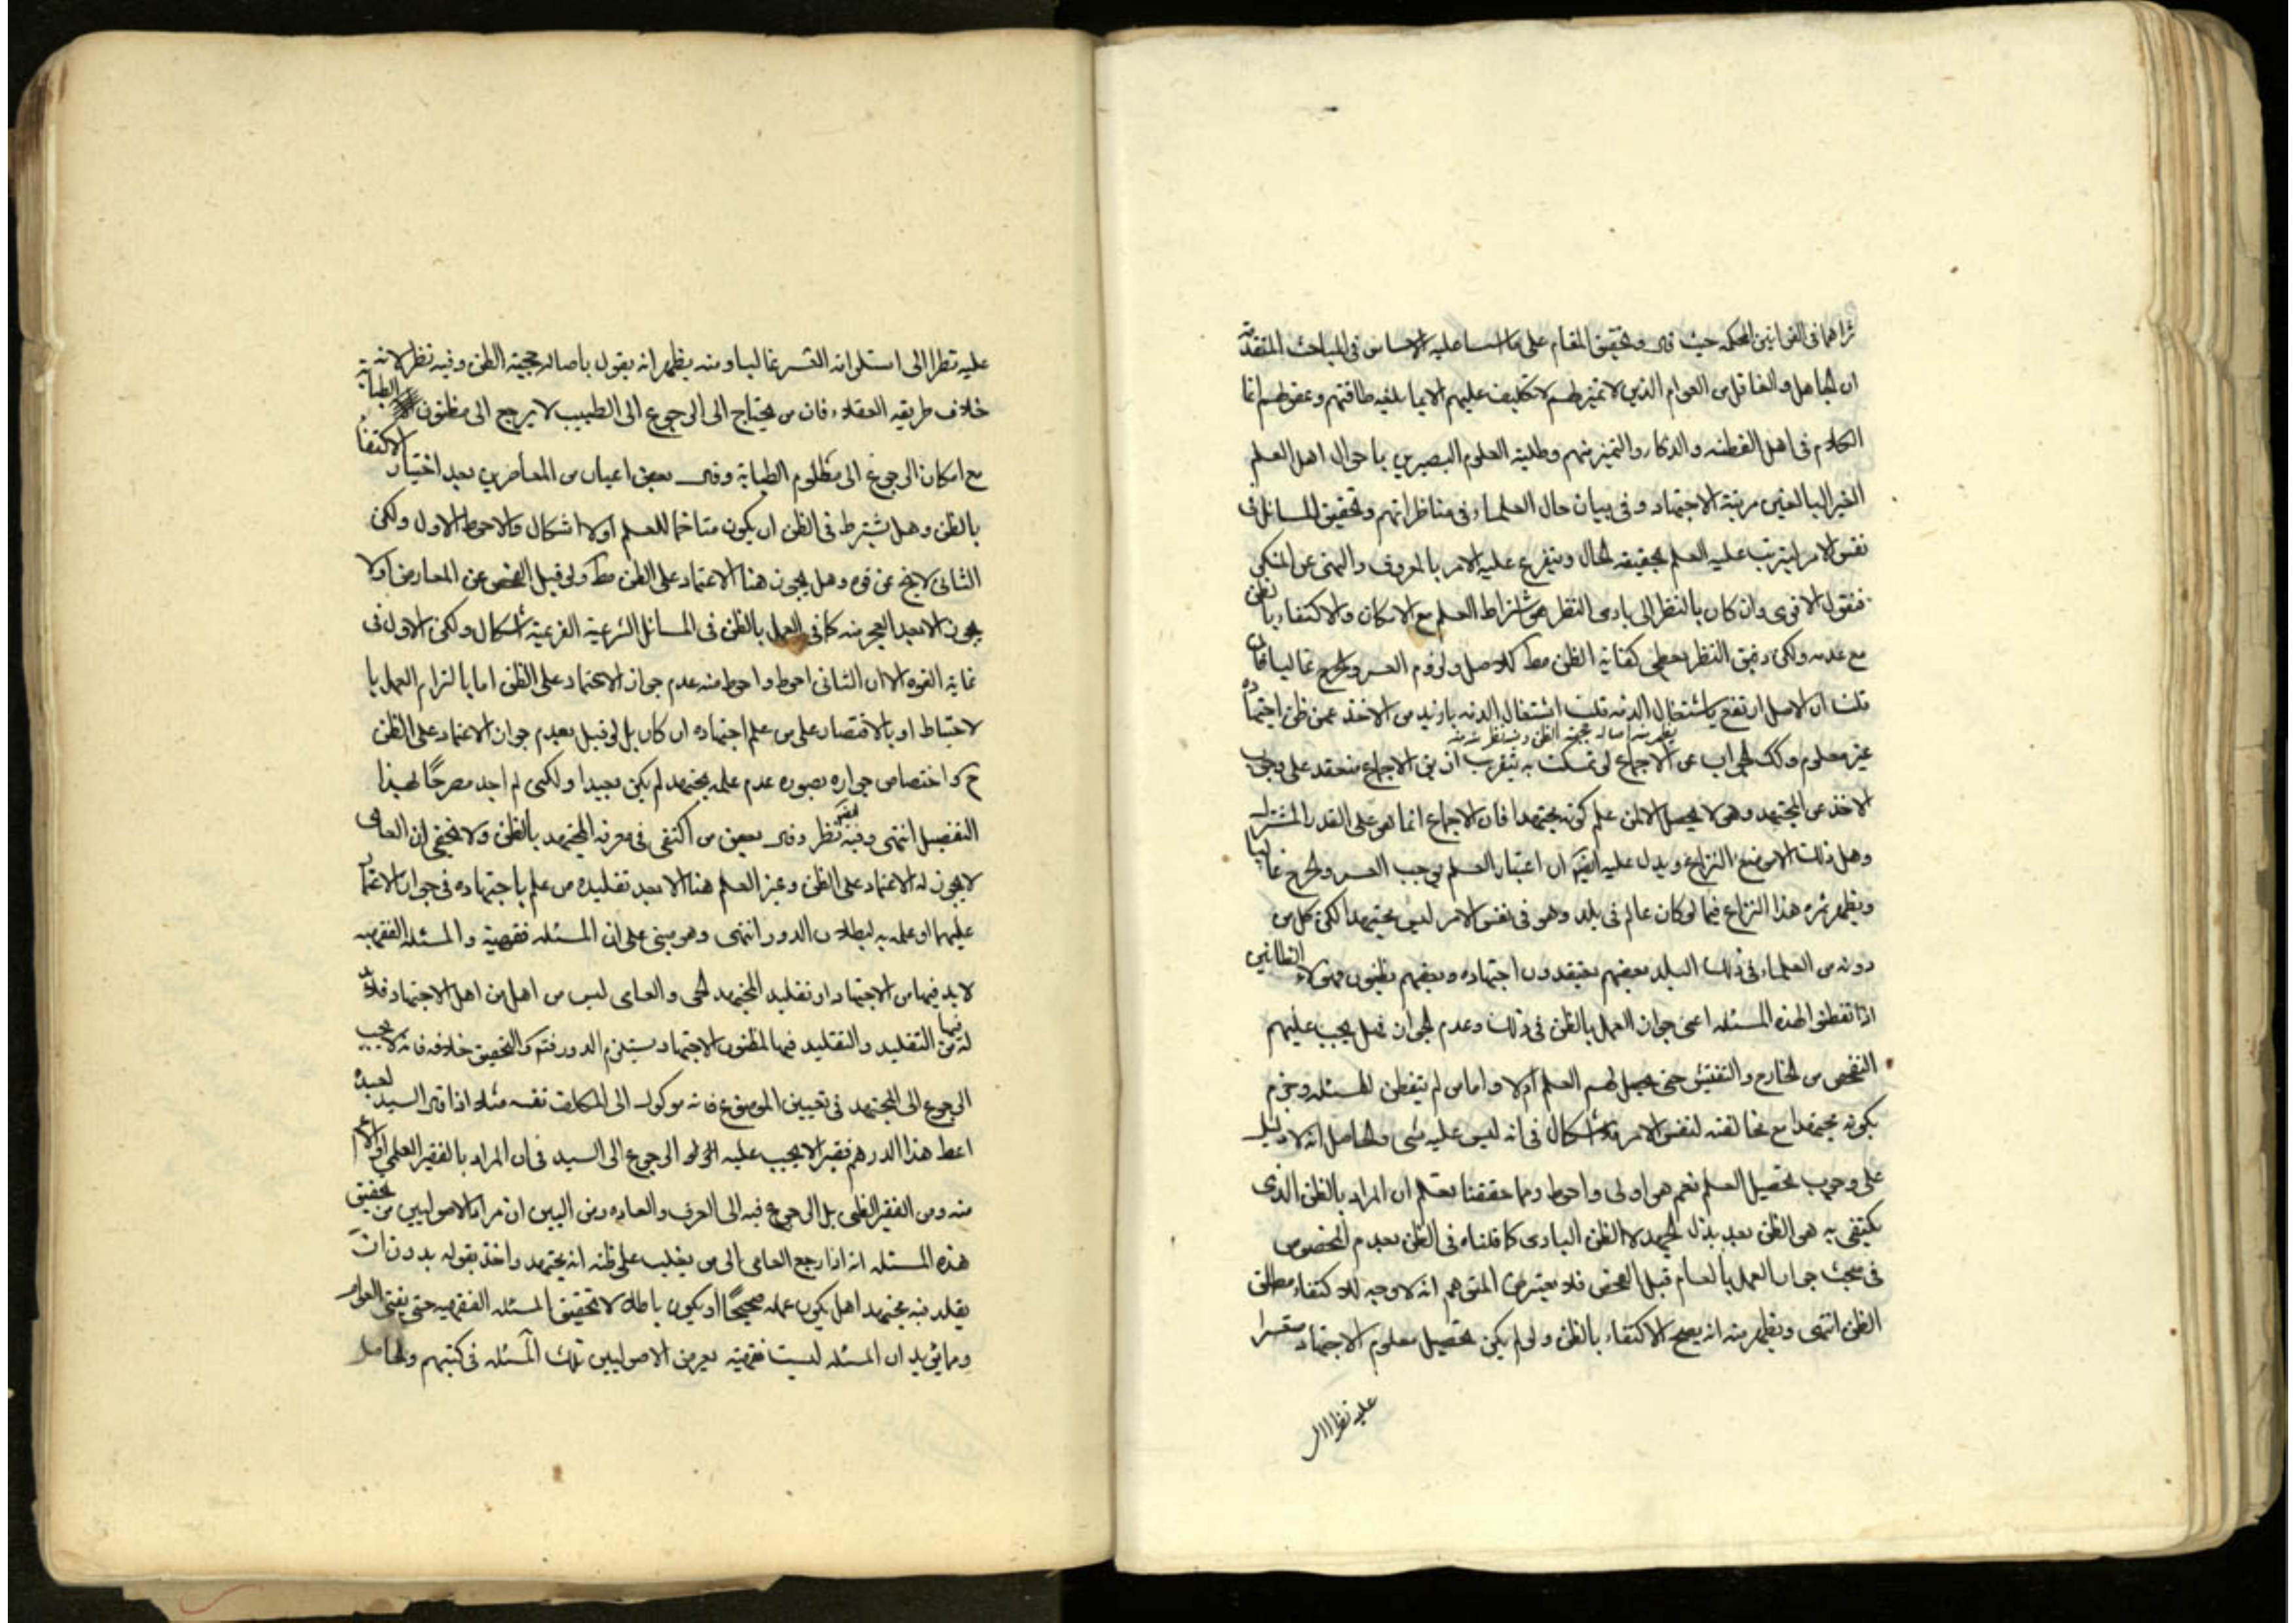 ثراهما فى القوانين المحكمه حيث قال وتحقيق المقام على ما اسسنا عليه الاساس فى المباحث المتقدمة
ان الجاهل والغافل من العوام الذين لا تميز لهم لا تكليف عليهم الا بما بلغه طاقتهم وعقولهم انما
الكلام فى اهل الفطنه والذكاء والتميز منهم وطلبة العلوم البصيرين باحوال اهل العلم
الغير البالغين مرتبة الاجتهاد وفى بيان حال العلماء فى مناظراتهم وتحقيق المسائل فى
نفس الامر ليترتب عليه العلم بحقيقه الحال ويتفرع عليه الامر بالمعروف والنهى عن المنكر
فنقول الاقوى وان كان بالنظر الى بادى النظر هو اشتراط العلم مع الامكان والاكتفاء بالظن
مع عدمه ولكن دقيق النظر يعطى كفاية الظن مط للاصل ولزوم العسر والحرج غالبا فان
قلت ان الاصل ارتفع باشتغال الذمه قلت اشتغال الذمه بازيد من الاخذ عمن ظن اجتهاده
يظهر منه اصاله حجية الظن وفيه نظر منه
غير معلوم وكك الجواب عن الاجماع لو تمسكت به بتقريب ان يق الاجماع منعقد على وجوب
الاخذ عن المجتهد وهو لا يحصل الا لمن علم كونه مجتهدا فان الاجماع انما هو على القدر المشترك
وهل ذلك الا موضع النزاع ويدل عليه ايضا ان اعتبار العلم يوجب العسر والحرج غالبا
ويظهر ثمره هذا النزاع فيما لو كان عالم فى بلد وهو فى نفس الامر ليس مجتهدا لكن كل من
دونه من العلماء فى ذلك البلد بعضهم يعتقدون اجتهاده وبعضهم يظنون فهؤلاء الظانين
اذا تفطنوا لهذه المسئله اعنى جواز العمل بالظن فى ذلك وعدم الجواز فهل يجب عليهم
التفحص من الخارج والتفتيش حتى يحصل لهم العلم ام لا واما من لم يتفطن للمسئله وجزم
بكونه مجتهدا مع مخالفته لنفس الامر فلا اشكال فى انه ليس عليه شى والحاصل انه لا دليل
على وجوب تحصيل العلم نعم هو اولى واحوط ومما حققنا يعلم ان المراد بالظن الذى
يكتفى به هو الظن بعد بذل الجهد لا الظن البادى كما قلناه فى الظن بعدم المخصوص
فى مبحث جواز العمل بالعام قبل الفحص فلا يعترض المتوهم انه لا وجه للاكتفاء مطلق
الظن انتهى ويظهر منه انه يصح الاكتفاء بالظن ولو لم يكن تحصيل معلوم الاجتهاد متعسرا
عليه نظرا الى
عليه نظرا الى استلزامه العسر غالبا ومنه يظهر انه يقول باصاله حجية الظن وفيه نظر لانه
خلاف طريقه العقلاء فان من يحتاج الى الرجوع الى الطبيب لا يرجع الى مظنون الطبابة
مع امكان الرجوع الى معلوم الطبابة وقال بعض اعيان من المعاصرين بعد اختيار الاكتفاء
بالظن وهل يشترط فى الظن ان يكون متاخما للعلم اولا اشكال والاحوط الاول ولكن
الثانى لا يخ عن قوه وهل يجوز هنا الاعتماد على الظن مط ولو قبل الفحص عن المعارض اولا
يجوز الا بعد العجز منه كما فى العمل بالظن فى المسائل الشرعية الفرعية اشكال ولكن الاول فى
غاية القوه الا ان الثانى احوط واحوط منه عدم جواز الاعتماد على الظن اما بالتزام العمل با
لاحتياط او بالاقتصار على من علم اجتهاده ان كان بل لو قيل بعدم جواز الاعتماد على الظن
ح واختصاص جوازه بصوره عدم علمه بمجتهد لم يكن بعيدا ولكنى لم اجد مصرحًا بهذا
التفصيل انتهى وفيه نظر وقال بعض من اكتفى فى معرفة المجتهد بالظن ولا يخفى ان العامى
لا يجوز له الاعتماد على الظن وغير العلم هنا الا بعد تقليده من علم باجتهاده فى جواز الاعتماد
عليهما او علمه به لبطلان الدور انتهى وهو مبنى على ان المسئله فقهية والمسئله الفقهيه
لابد فيها من الاجتهاد او تقليد المجتهد الحى والعامى ليس من اهل من اهل الاجتهاد فلابد
له من التقليد والتقليد فيها لمظنون الاجتهاد يستلزم الدور فتم والتحقيق خلافه فانه لا يجب
الرجوع الى المجتهد فى تعيين الموضوع فانه موكول الى المكلف نفسه مثلا اذا قال السيد لعبده
اعط هذا الدرهم فقيرا لا يجب عليه الرجوع الى السيد فى ان المراد بالفقير العلمى او الاعم
منه ومن الفقير الظنى بل الرجوع فيه الى العرف والعاده ومن البين ان مراد الاصوليين من تحقيق
هذه المسئله انه اذا رجع العامى الى من يغلب على ظنه انه مجتهد واخذ بقوله بدون ان
يقلد فيه مجتهدا هل يكون عمله صحيحًا او يكون باطلا لا تحقيق المسئله الفقهيه حتى يفتى العوام
ومما يؤيد ان المسئله ليست فقهية تعرض الاصوليين تلك المسئله فى كتبهم والحاصل